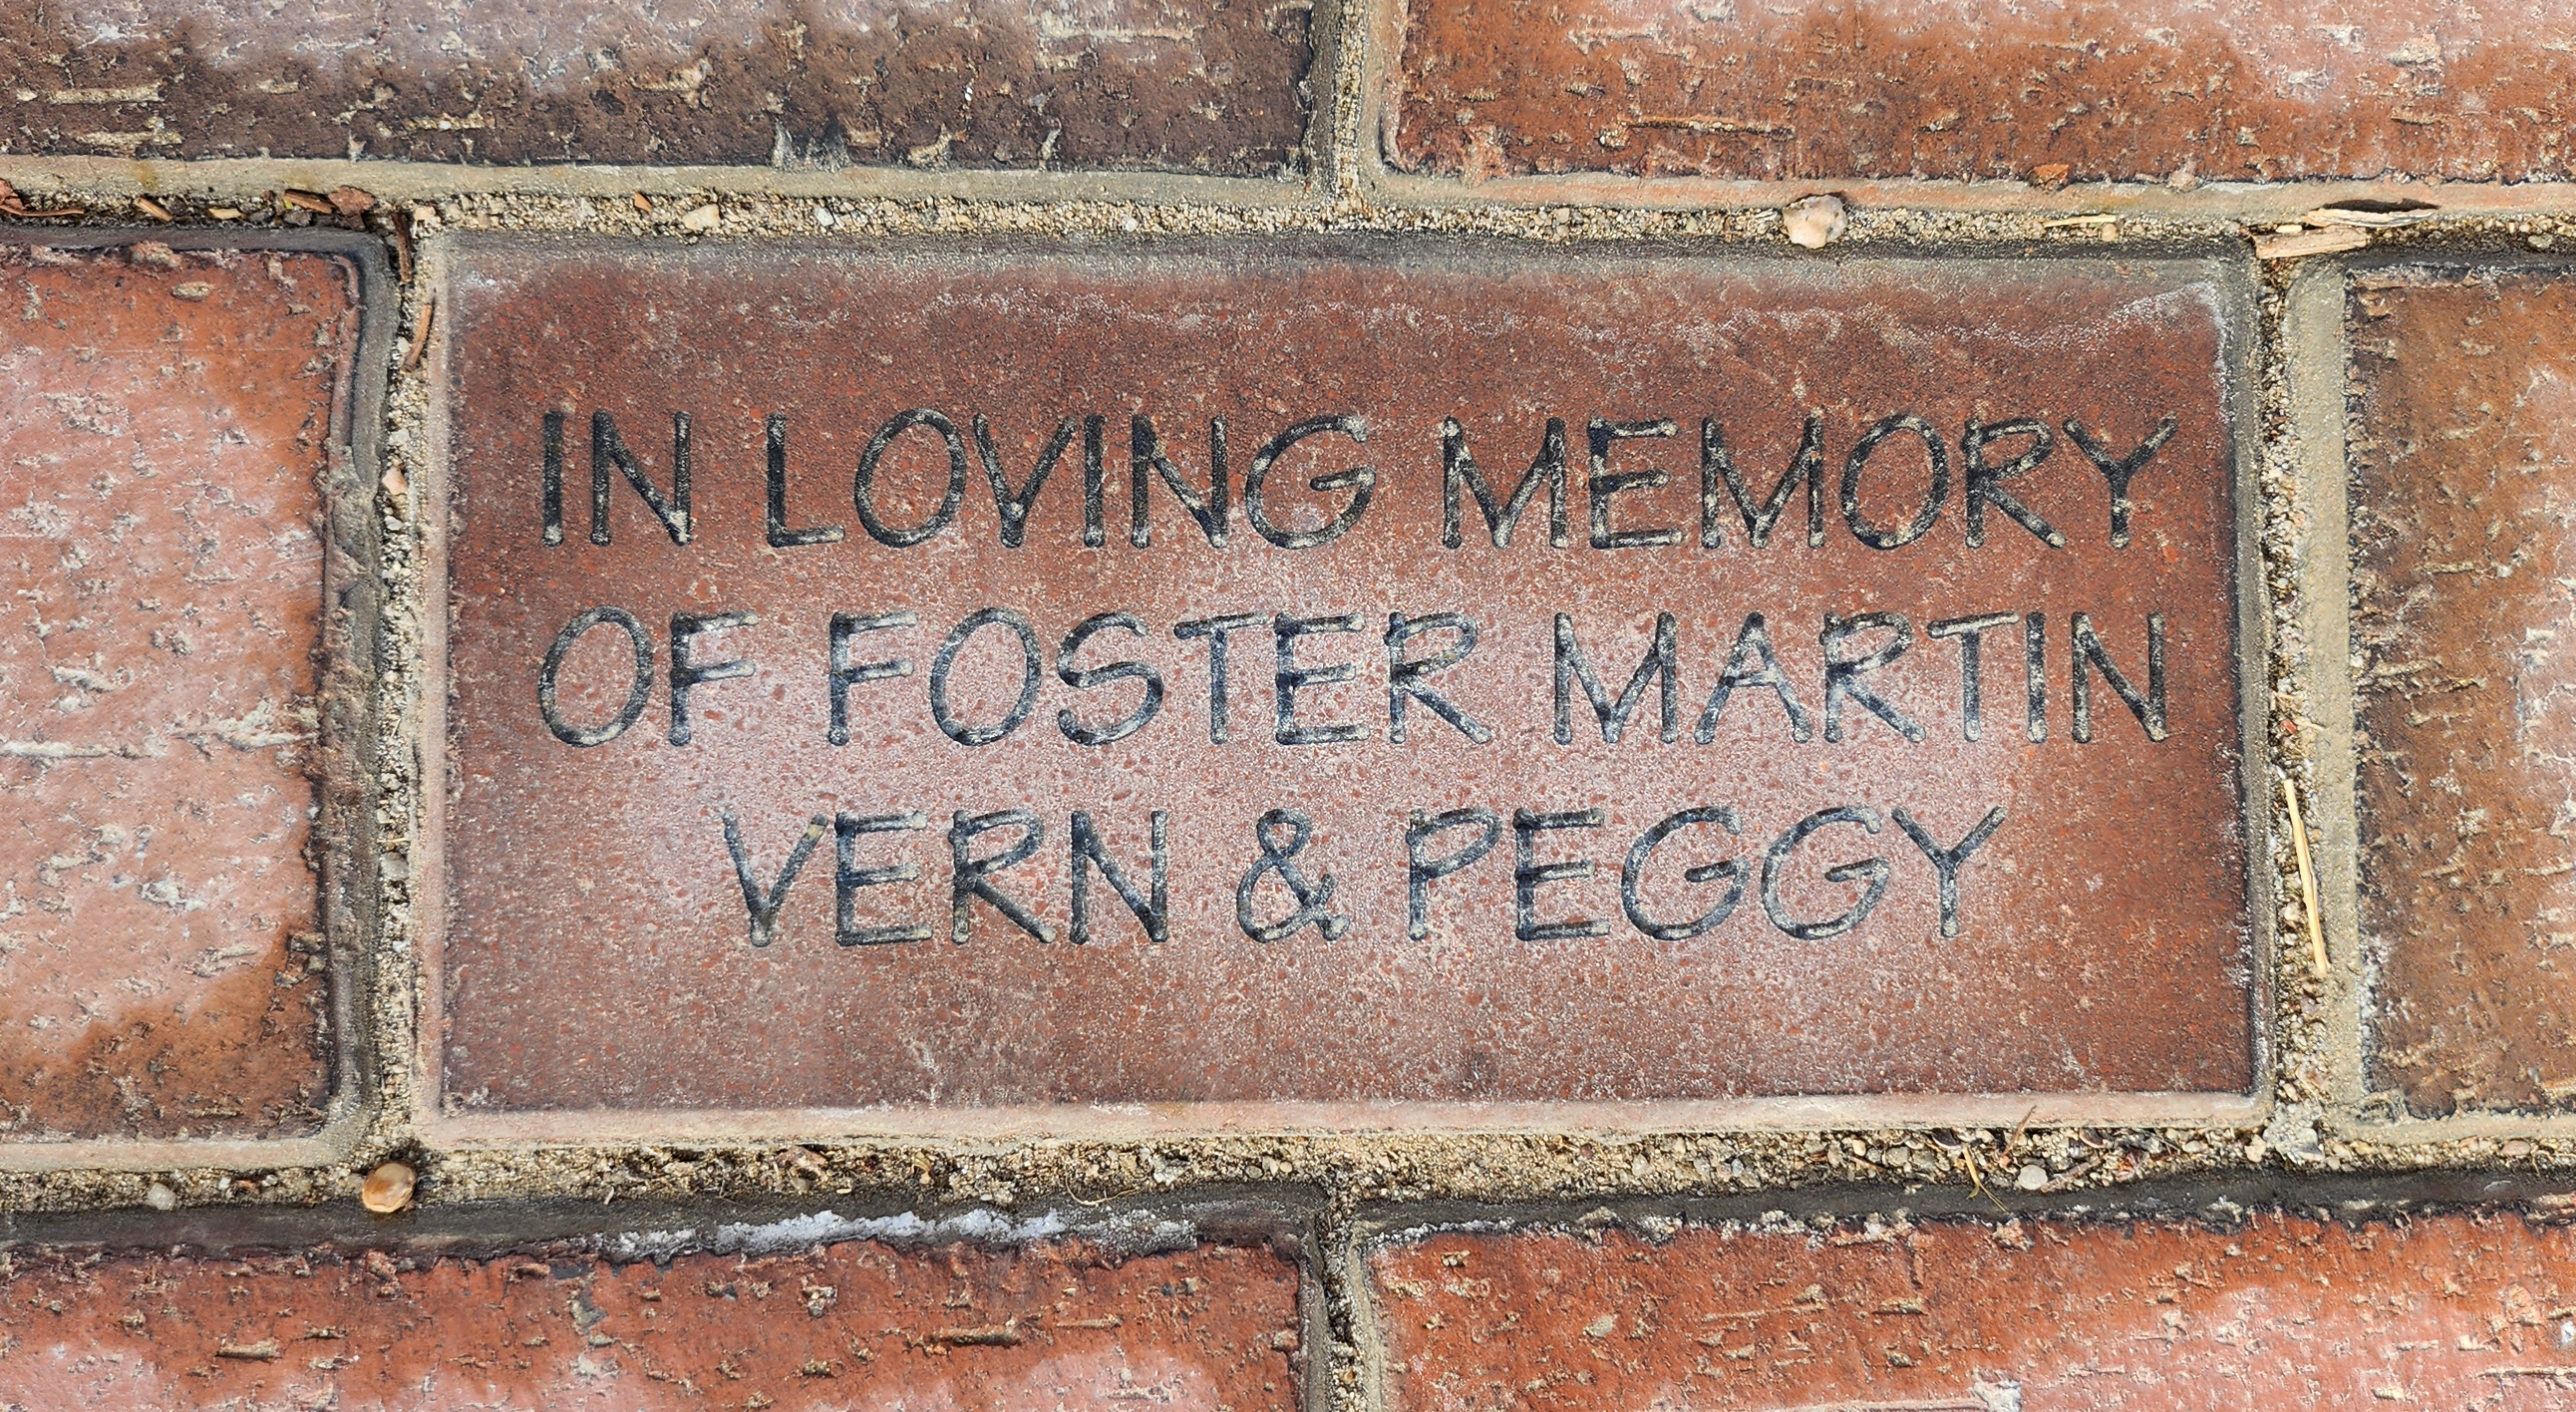 IN LOVING MEMORY
OF FOSTER MARTIN
VERN & PEGGY